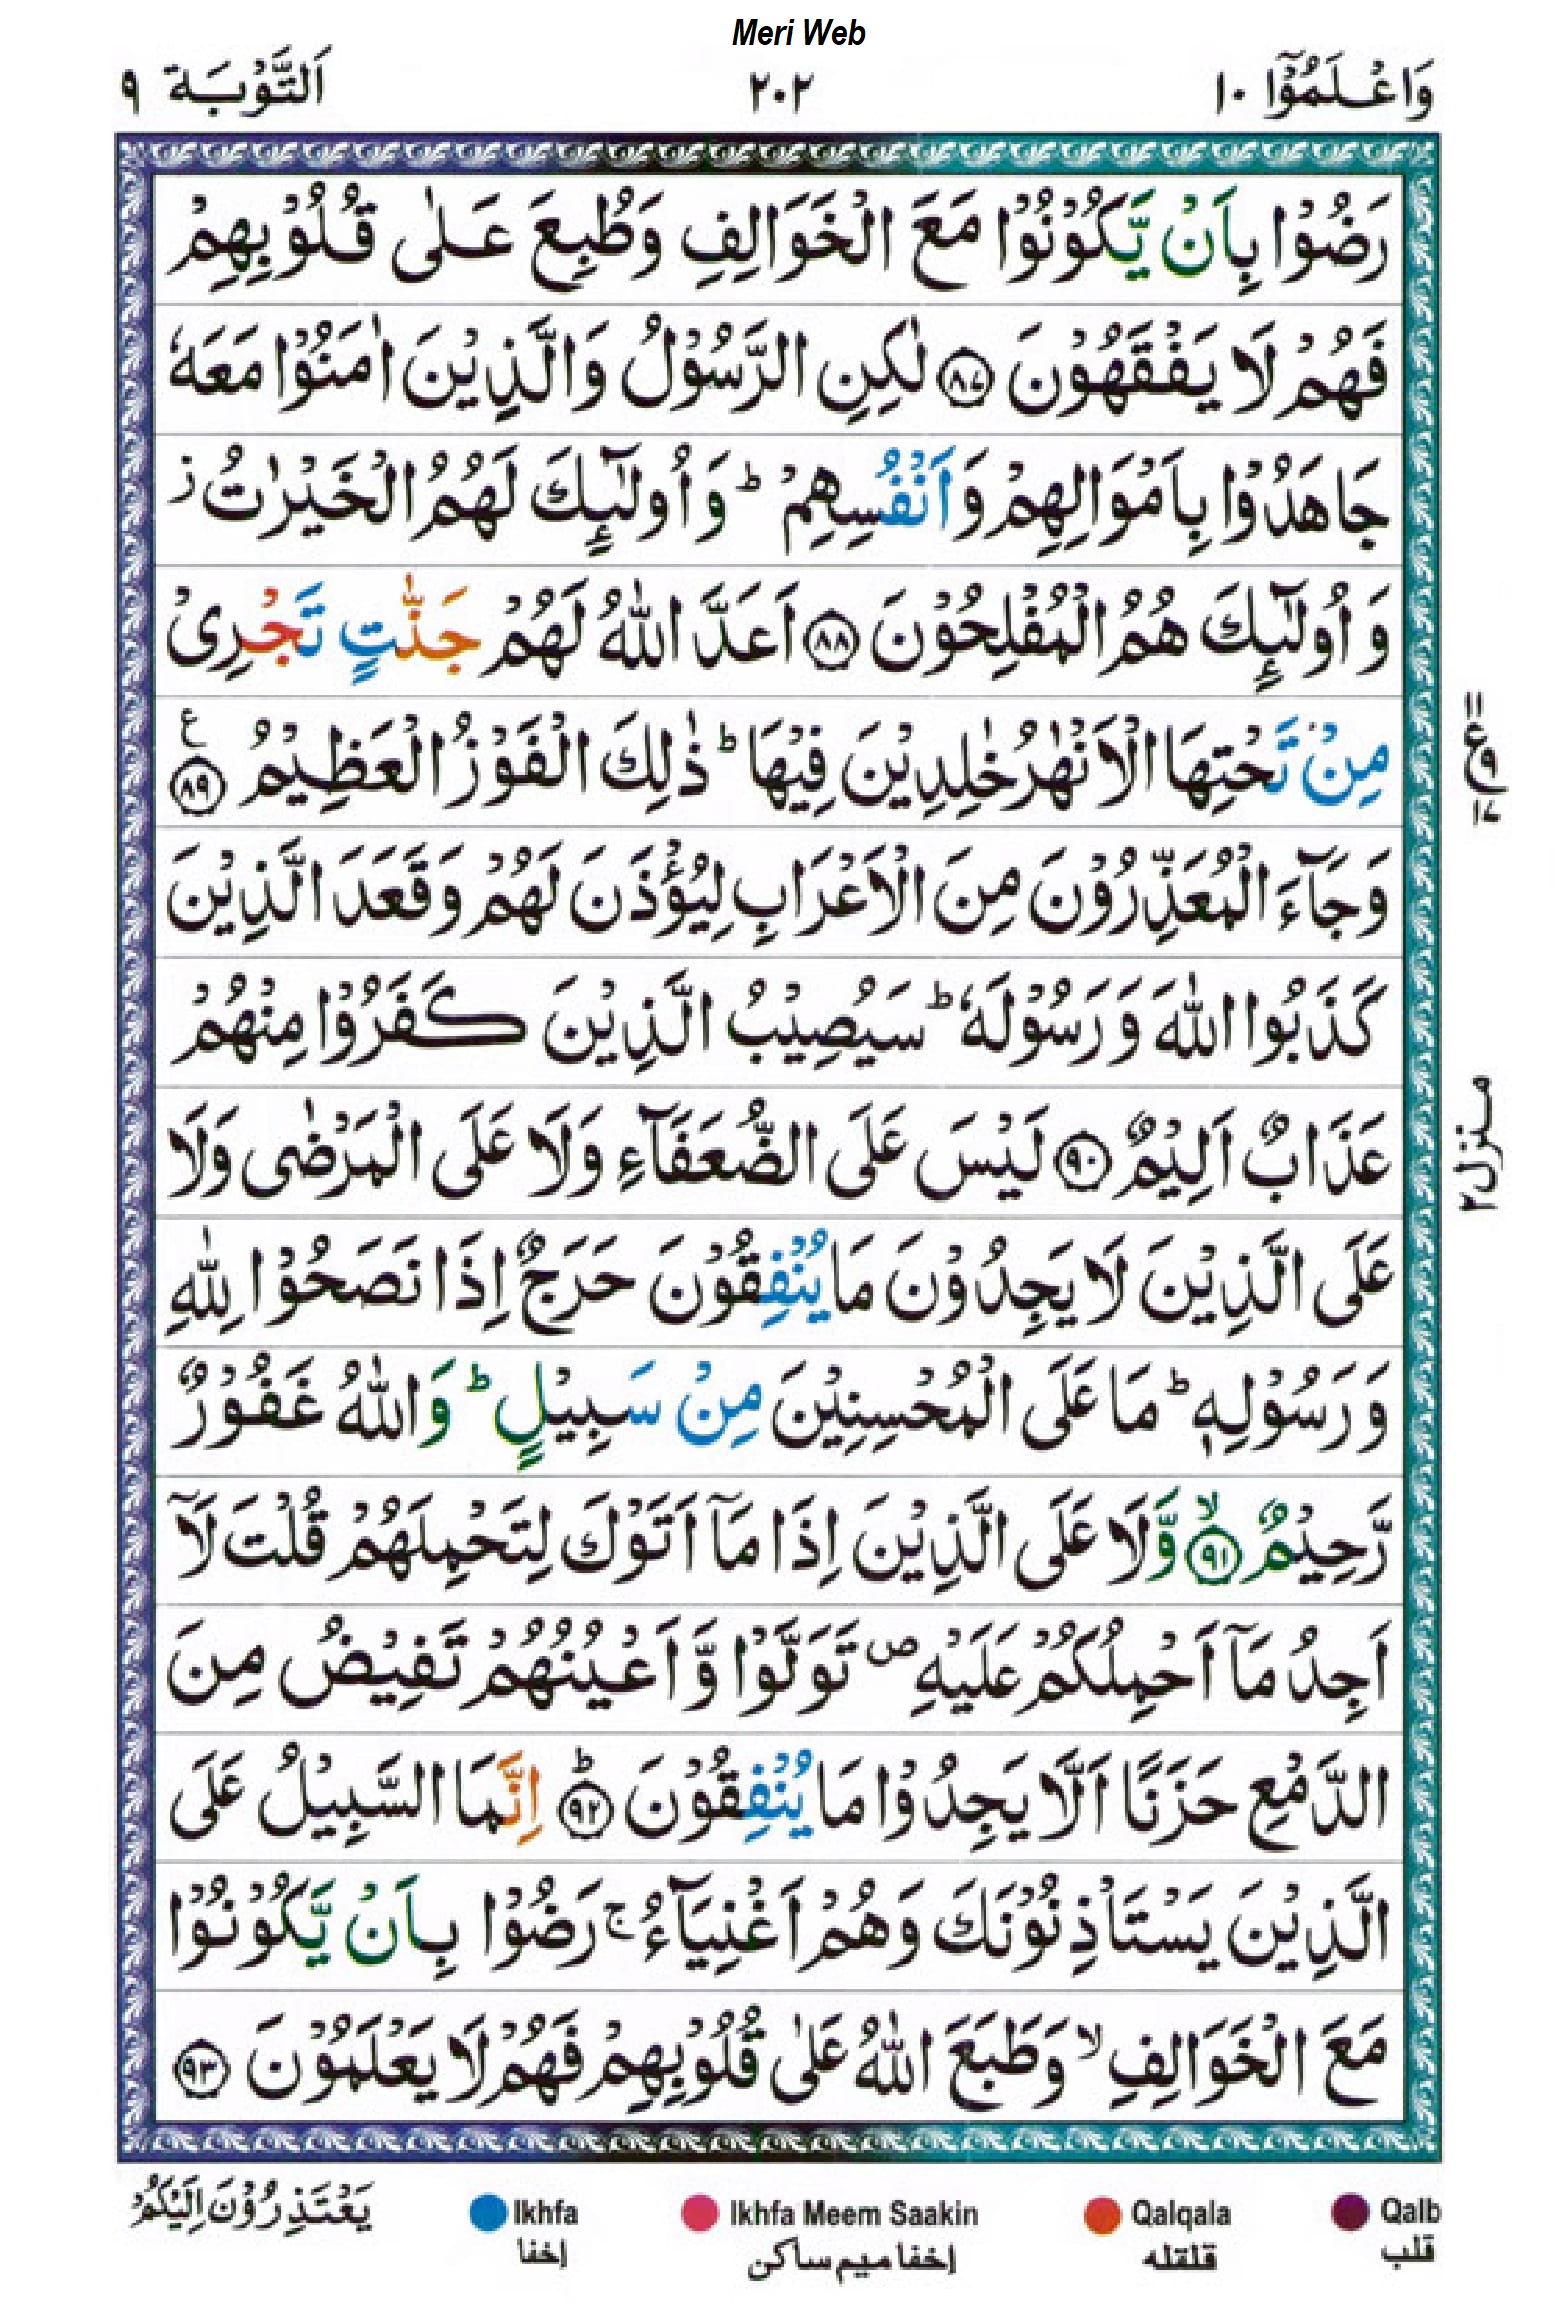 Meri Web
وَاعْلَمُوْۤا ١٠
٢٠٢
اَلتَّوْبَة ٩
رَضُوْا بِاَنْ يَّكُوْنُوْا مَعَ الْخَوَالِفِ وَطُبِعَ عَلٰى قُلُوْبِهِمْ
فَهُمْ لَا يَفْقَهُوْنَ ﴿۸۷﴾ لٰكِنِ الرَّسُوْلُ وَالَّذِيْنَ اٰمَنُوْا مَعَهٗ
جَاهَدُوْا بِاَمْوَالِهِمْ وَاَنْفُسِهِمْ ؕ وَاُولٰٓئِكَ لَهُمُ الْخَيْرٰتُ ز
وَاُولٰٓئِكَ هُمُ الْمُفْلِحُوْنَ ﴿۸۸﴾ اَعَدَّ اللّٰهُ لَهُمْ جَنّٰتٍ تَجْرِىْ
مِنْ تَحْتِهَا الْاَنْهٰرُ خٰلِدِيْنَ فِيْهَا ؕ ذٰلِكَ الْفَوْزُ الْعَظِيْمُ ﴿۸۹﴾ ع
وَجَآءَ الْمُعَذِّرُوْنَ مِنَ الْاَعْرَابِ لِيُؤْذَنَ لَهُمْ وَقَعَدَ الَّذِيْنَ
كَذَبُوا اللّٰهَ وَرَسُوْلَهٗ ؕ سَيُصِيْبُ الَّذِيْنَ كَفَرُوْا مِنْهُمْ
عَذَابٌ اَلِيْمٌ ﴿۹۰﴾ لَيْسَ عَلَى الضُّعَفَآءِ وَلَا عَلَى الْمَرْضٰى وَلَا
عَلَى الَّذِيْنَ لَا يَجِدُوْنَ مَا يُنْفِقُوْنَ حَرَجٌ اِذَا نَصَحُوْا لِلّٰهِ
وَرَسُوْلِهٖ ؕ مَا عَلَى الْمُحْسِنِيْنَ مِنْ سَبِيْلٍ ؕ وَاللّٰهُ غَفُوْرٌ
رَّحِيْمٌ ﴿۹۱﴾ۙ وَّلَا عَلَى الَّذِيْنَ اِذَا مَآ اَتَوْكَ لِتَحْمِلَهُمْ قُلْتَ لَآ
اَجِدُ مَآ اَحْمِلُكُمْ عَلَيْهِ ص تَوَلَّوْا وَّاَعْيُنُهُمْ تَفِيْضُ مِنَ
الدَّمْعِ حَزَنًا اَلَّا يَجِدُوْا مَا يُنْفِقُوْنَ ﴿۹۲﴾ؕ اِنَّمَا السَّبِيْلُ عَلَى
الَّذِيْنَ يَسْتَاْذِنُوْنَكَ وَهُمْ اَغْنِيَآءُ ۚ رَضُوْا بِاَنْ يَّكُوْنُوْا
مَعَ الْخَوَالِفِ ۙ وَطَبَعَ اللّٰهُ عَلٰى قُلُوْبِهِمْ فَهُمْ لَا يَعْلَمُوْنَ ﴿۹۳﴾
منزل ٢
يَعْتَذِرُوْنَ اِلَيْكُمْ
Ikhfa
إخفا
Ikhfa Meem Saakin
إخفا ميم ساكن
Qalqala
قلقله
Qalb
قلب